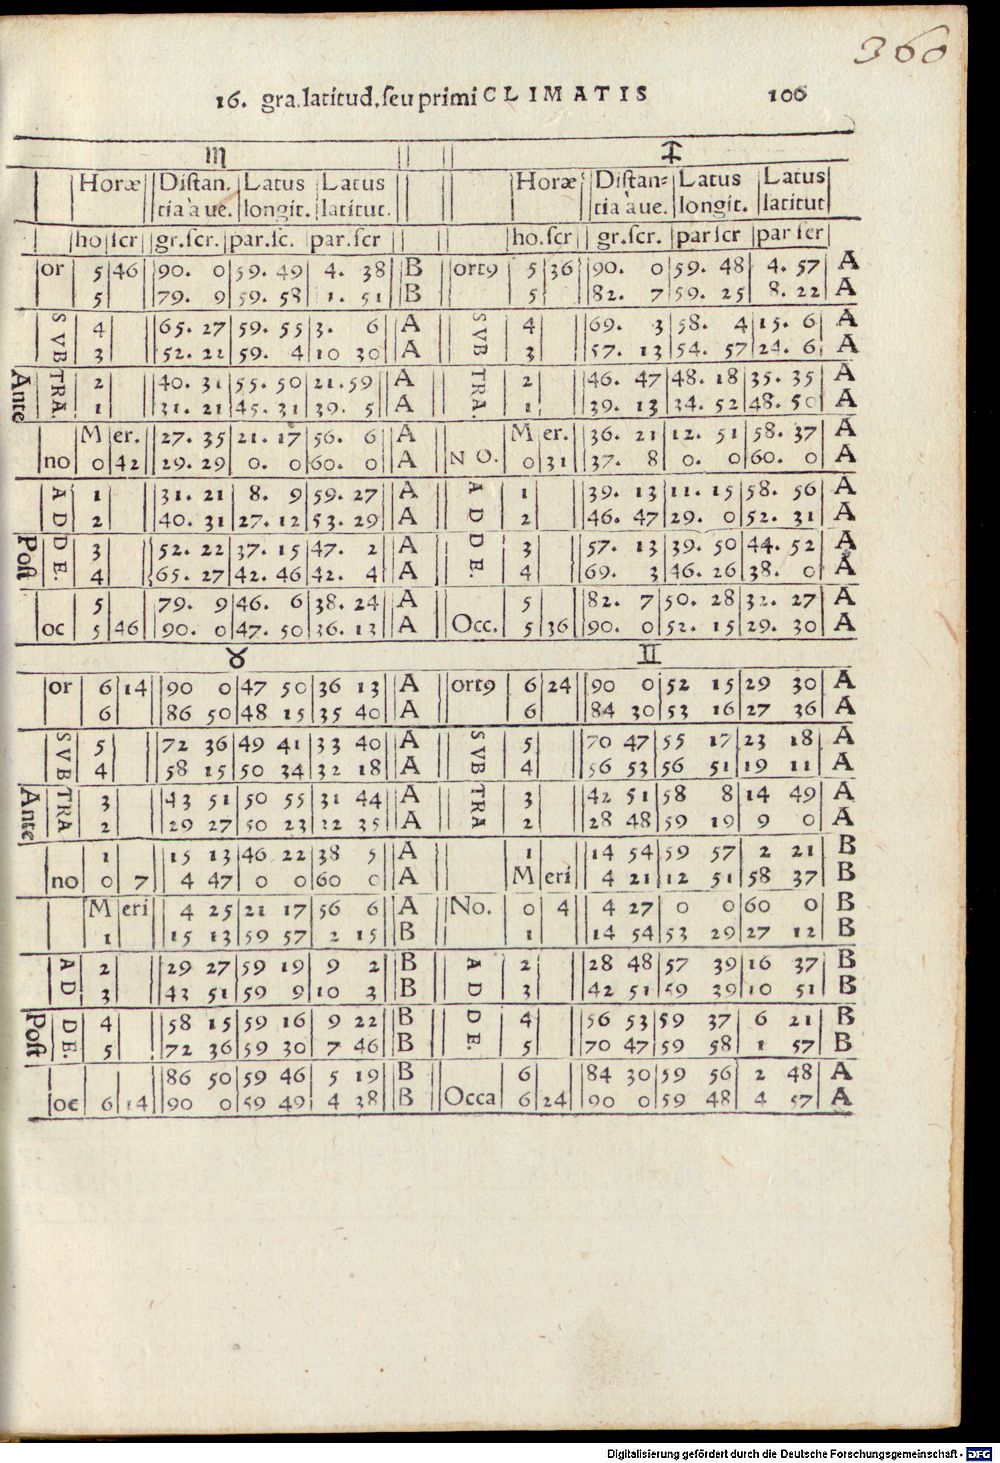 360
16. gra.latitud.ſeu primi CLIMATIS 100
♏ ♐
Horæ Diſtan. Latus Latus Horæ Diſtan= Latus Latus
tia à ue. longit. latitut. tia à ue. longit. latitut
ho ſcr gr.ſcr. par.ſc. par.ſcr ho.ſcr gr.ſcr. par ſcr par ſcr
or 5 46 90. 0 59. 49 4. 38 B ort9 5 36 90. 0 59. 48 4. 57 A
5 79. 9 59. 58 1. 51 B 5 82. 7 59. 25 8. 22 A
SVB 4 65. 27 59. 55 3. 6 A SVB 4 69. 3 58. 4 15. 6 A
3 52. 22 59. 4 10 30 A 3 57. 13 54. 57 24. 6 A
Ante TRA. 2 40. 31 55. 50 21.59 A TRA. 2 46. 47 48. 18 35. 35 A
1 31. 21 45. 31 39. 5 A 1 39. 13 34. 52 48. 50 A
Mer. 27. 35 21. 17 56. 6 A Mer. 36. 21 12. 51 58. 37 A
no 0 42 29. 29 0. 0 60. 0 A NO. 0 31 37. 8 0. 0 60. 0 A
AD 1 31. 21 8. 9 59. 27 A AD 1 39. 13 11. 15 58. 56 A
2 40. 31 27. 12 53. 29 A 2 46. 47 29. 0 52. 31 A
Poſt DE. 3 52. 22 37. 15 47. 2 A DE. 3 57. 13 39. 50 44. 52 A
4 65. 27 42. 46 42. 4 A 4 69. 3 46. 26 38. 0 A
5 79. 9 46. 6 38. 24 A 5 82. 7 50. 28 32. 27 A
oc 5 46 90. 0 47. 50 36. 13 A Occ. 5 36 90. 0 52. 15 29. 30 A
♉ ♊
or 6 14 90 0 47 50 36 13 A ort9 6 24 90 0 52 15 29 30 A
6 86 50 48 15 35 40 A 6 84 30 53 16 27 36 A
SVB 5 72 36 49 41 33 40 A SVB 5 70 47 55 17 23 18 A
4 58 15 50 34 32 18 A 4 56 53 56 51 19 11 A
Ante TRA 3 43 51 50 55 31 44 A TRA 3 42 51 58 8 14 49 A
2 29 27 50 23 32 35 A 2 28 48 59 19 9 0 A
1 15 13 46 22 38 5 A 1 14 54 59 57 2 21 B
no 0 7 4 47 0 0 60 0 A Meri 4 21 12 51 58 37 B
Meri 4 25 21 17 56 6 A No. 0 4 4 27 0 0 60 0 B
1 15 13 59 57 2 15 B 1 14 54 53 29 27 12 B
AD 2 29 27 59 19 9 2 B AD 2 28 48 57 39 16 37 B
3 43 51 59 9 10 3 B 3 42 51 59 39 10 51 B
Poſt DE. 4 58 15 59 16 9 22 B DE. 4 56 53 59 37 6 21 B
5 72 36 59 30 7 46 B 5 70 47 59 58 1 57 B
86 50 59 46 5 19 B 6 84 30 59 56 2 48 A
oc 6 14 90 0 59 49 4 38 B Occa 6 24 90 0 59 48 4 57 A
Digitalisierung gefördert durch die Deutsche Forschungsgemeinschaft - DFG